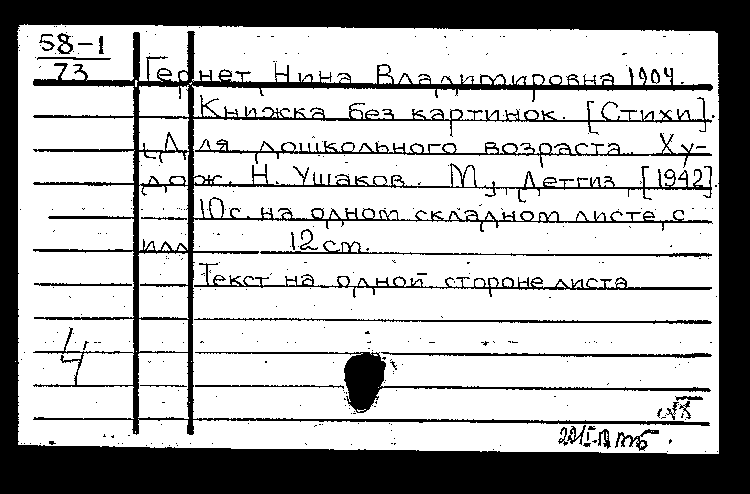 58-1
73
Гернет, Нина Владимировна 1904.
Книжка без картинок. [Стихи].
(Для дошкольного возраста. Ху-
дож. Н. Ушаков. М., Детгиз, [1942]
10с. на одном складном листе, с
илл 12 см.
Текст на одной стороне листа
4